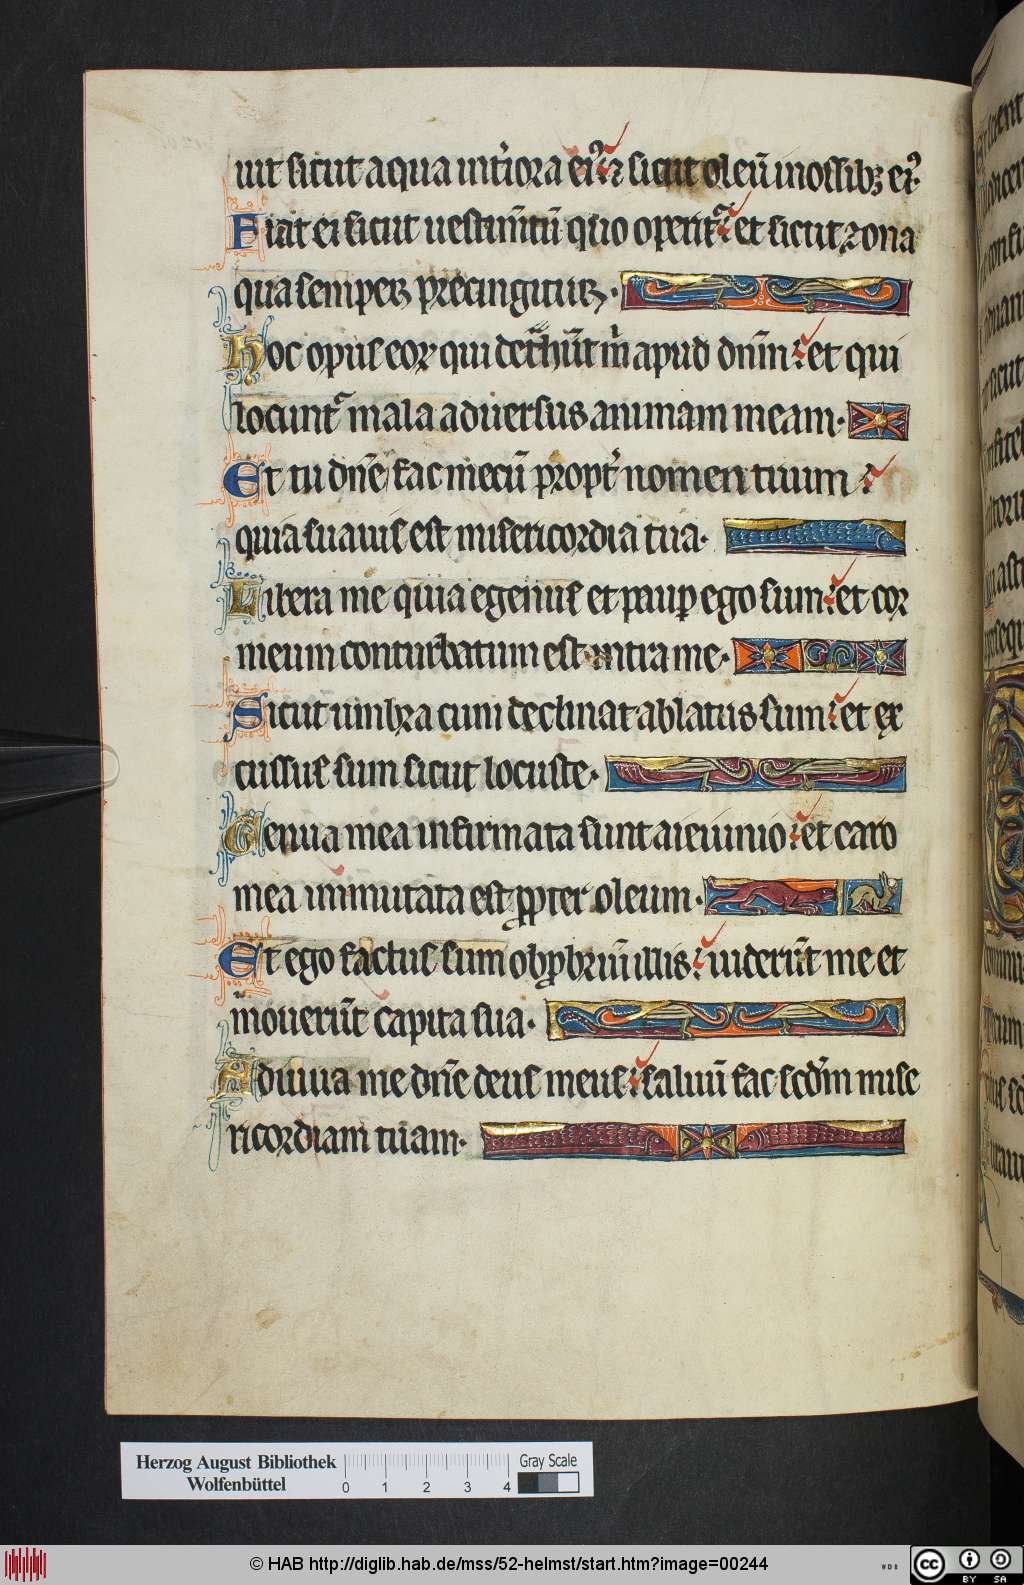 uit sicut aqua int̾iora ei᾿ ⁊ sicut oleū in ossibꝫ ei᾿.
Fiat ei sicut uestim̄tū quo operit᷑ et sicut zona
qua semper precingitur.
Hoc opus eoꝝ qui det̾hūt m̾ apud dn̄m et qui
locunt᷑ mala aduersus animam meam.
Et tu dn̄e fac mecū propt̾ nomen tuum
quia suauis est misericordia tua.
Libera me quia egenus et paup ego sum et cor
meum conturbatum est intra me.
Sicut umbra cum declinat ablatus sum et ex
cussus sum sicut locuste.
Genua mea infirmata sunt a ieiunio et caro
mea immutata est ꝓpter oleum.
Et ego factus sum obꝓbriū illis uiderūt me et
mouerūt capita sua.
Adiuua me dn̄e deus meus saluū fac scd̄m mise
ricordiam tuam.
Herzog August Bibliothek
Wolfenbüttel
0 1 2 3 4
Gray Scale
© HAB http://diglib.hab.de/mss/52-helmst/start.htm?image=00244
WDB
cc BY SA